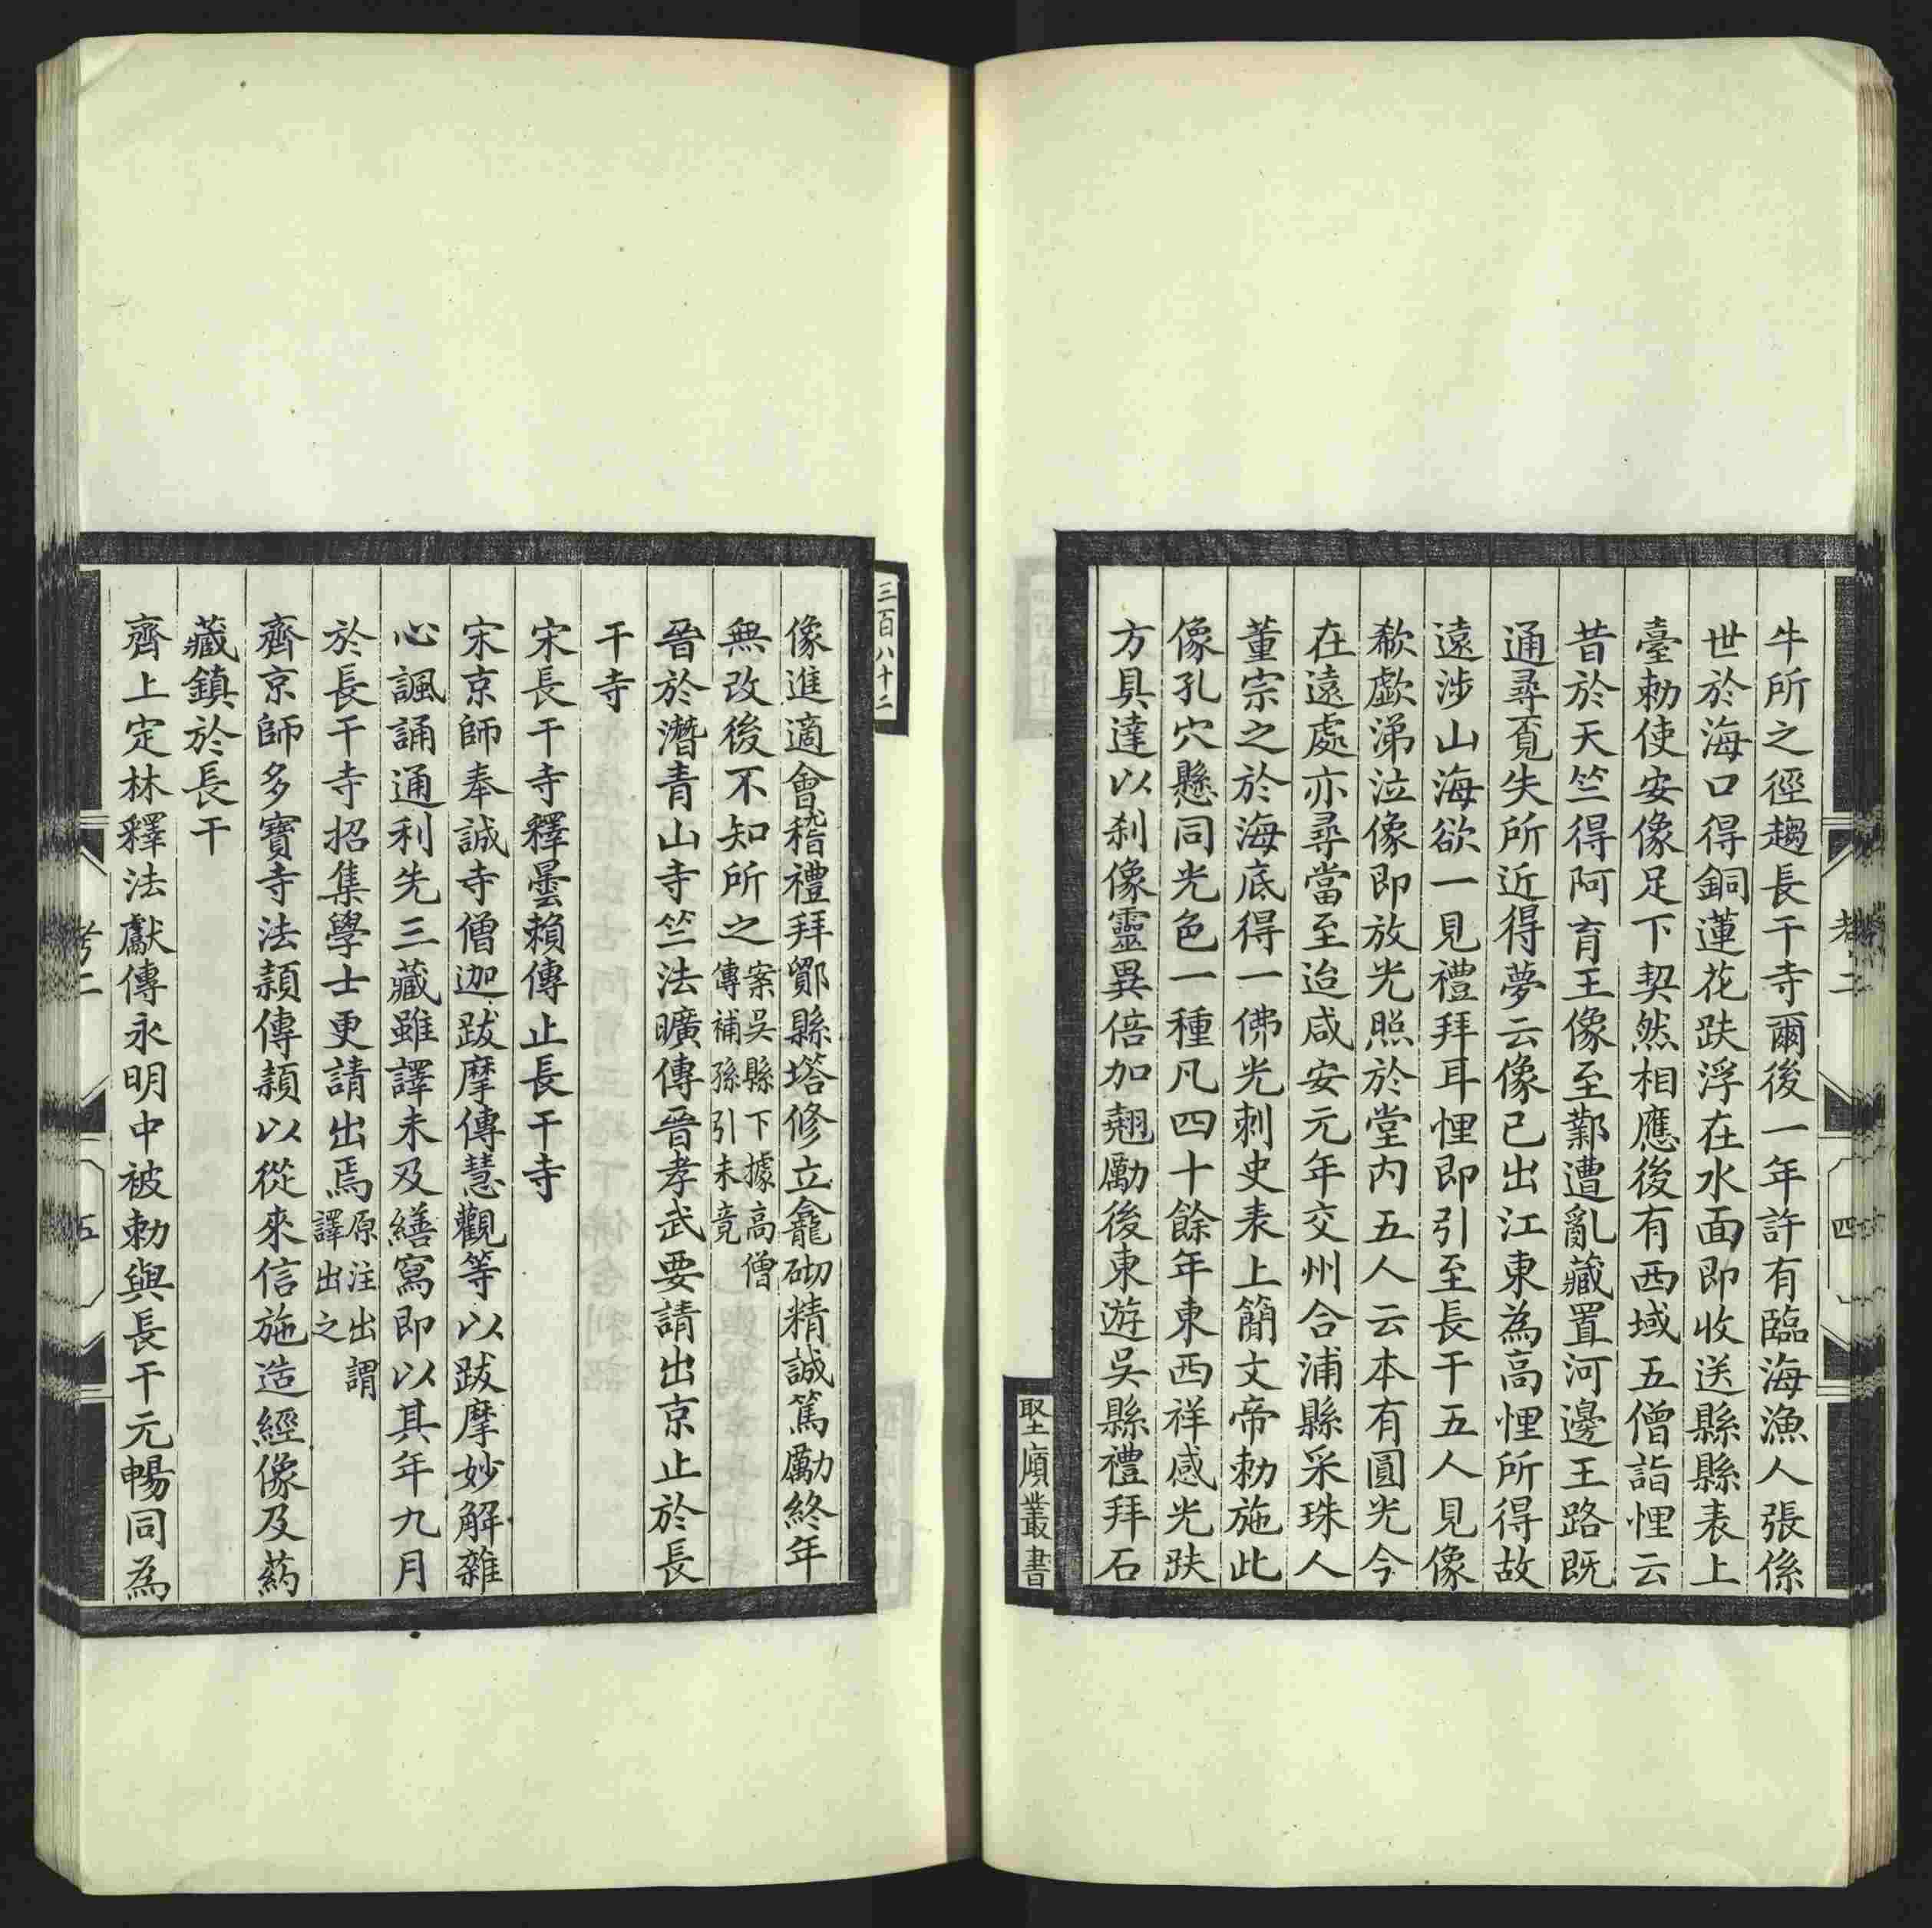 牛所之徑趨長干寺爾後一年許有臨海漁人張係
世於海口得銅蓮花趺浮在水面即收送縣縣表上
臺勅使安像足下契然相應後有西域五僧詣悝云
昔於天竺得阿育王像至鄴遭亂藏置河邊王路既
通尋覓失所近得夢云像已出江東為高悝所得故
遠涉山海欲一見禮拜耳悝即引至長干五人見像
欷歔涕泣像即放光照於堂內五人云本有圓光今
在遠處亦尋當至迨咸安元年交州合浦縣采珠人
董宗之於海底得一佛光刺史表上簡文帝勅施此
像孔穴懸同光色一種凡四十餘年東西祥感光趺
方具達以刹像靈異倍加翹勵後東遊吳縣禮拜石
考二
四
堅㢈叢書
三百八十二
像進適會稽禮拜鄮縣塔修立龕砌精誠篤勵終年
無改後不知所之案吳縣下據高僧傳補孫引未竟
晉於潛青山寺竺法曠傳晉孝武要請出京止於長
干寺
宋長干寺釋曇賴傳止長干寺
宋京師奉誠寺僧迦跋摩傳慧觀等以跋摩妙解雜
心諷誦通利先三藏雖譯未及繕寫即以其年九月
於長干寺招集學士更請出焉原注出謂譯出之
齊京師多寶寺法頴傳頴以從來信施造經像及葯
藏鎮於長干
齊上定林釋法獻傳永明中被勅與長干元暢同為
考二
五